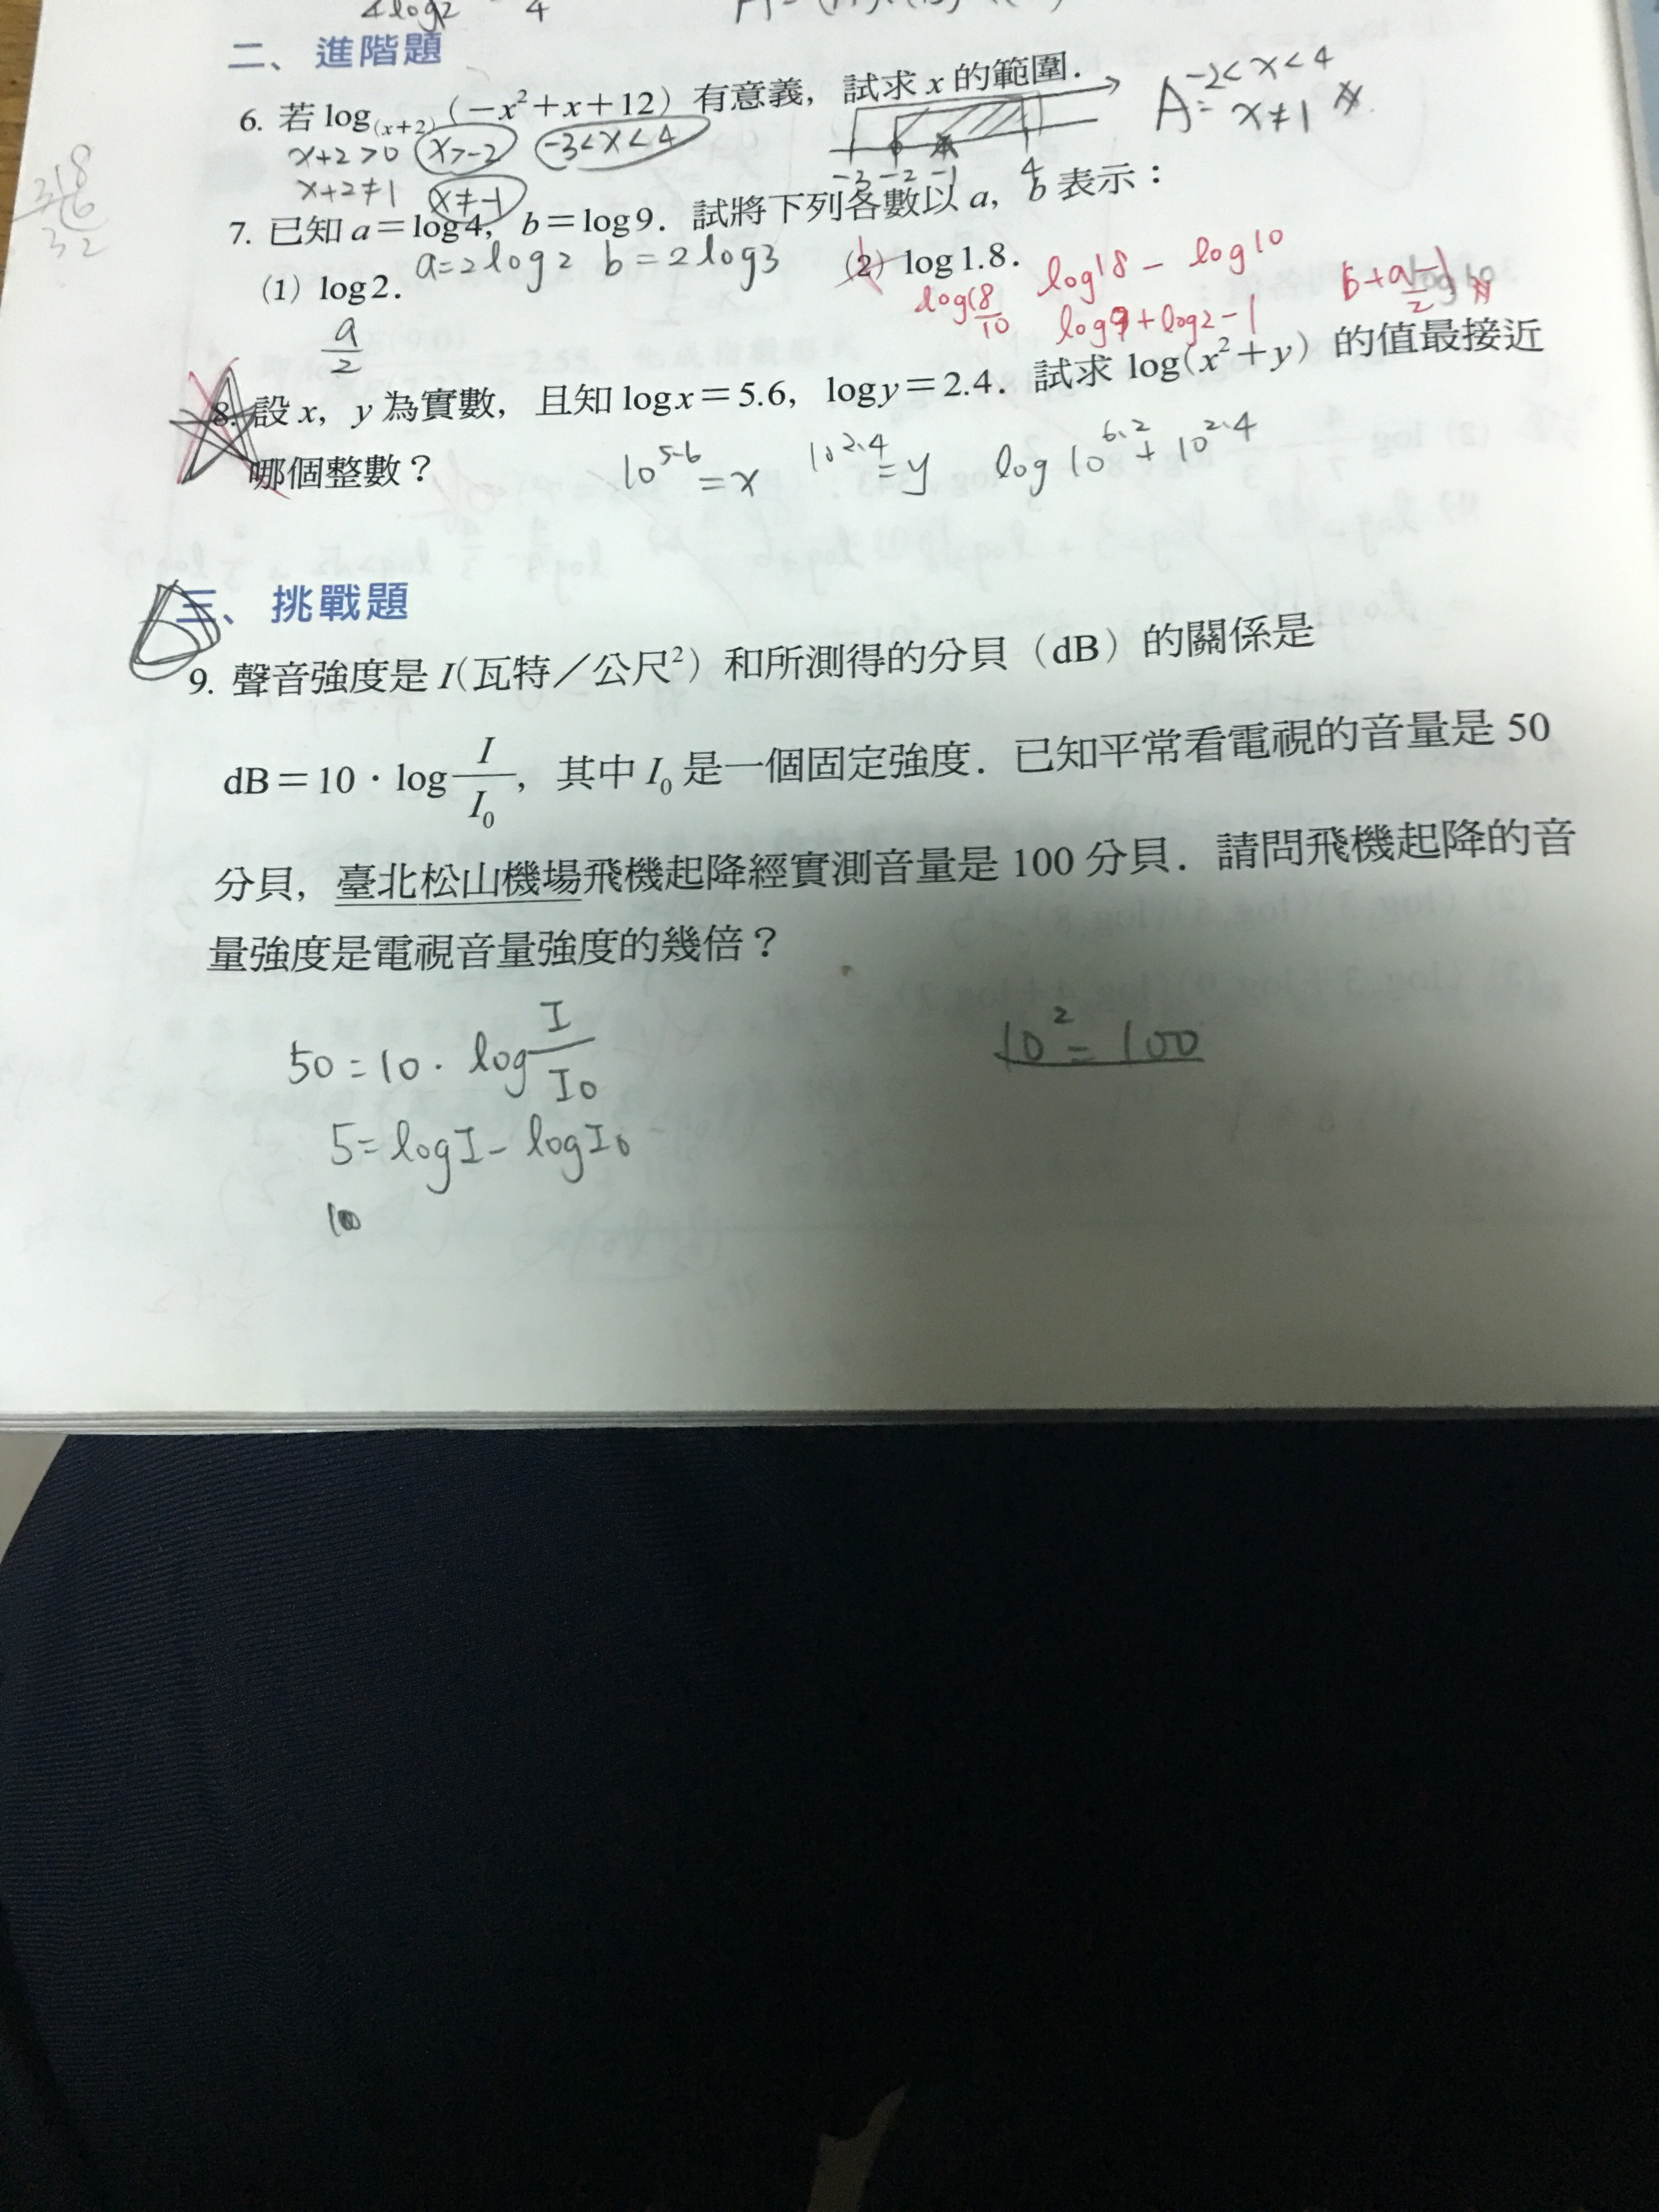 4log2 4
二、進階題
6. 若 log₍ₓ₊₂₎(−x²+x+12) 有意義，試求 x 的範圍．
x+2>0 x>-2 -3<x<4
x+2≠1 x≠-1
-3 -2 -1 4
A= -2<x<4
x≠1
7. 已知 a＝log4，b＝log9．試將下列各數以 a，b 表示：
a=2log2 b=2log3
(1) log2．
a/2
(2) log1.8．
log18/10
log18 - log10
log9+log2-1
b+a/2-1
8. 設 x，y 為實數，且知 logx＝5.6，logy＝2.4．試求 log(x²＋y) 的值最接近
哪個整數？
10^5.6=x 10^2.4=y log 10^6.2+10^2.4
三、挑戰題
9. 聲音強度是 I(瓦特／公尺²）和所測得的分貝（dB）的關係是
dB＝10・log I/I₀，其中 I₀ 是一個固定強度．已知平常看電視的音量是 50
分貝，臺北松山機場飛機起降經實測音量是 100 分貝．請問飛機起降的音
量強度是電視音量強度的幾倍？
50=10・log I/I₀
10²=100
5=logI-logI₀